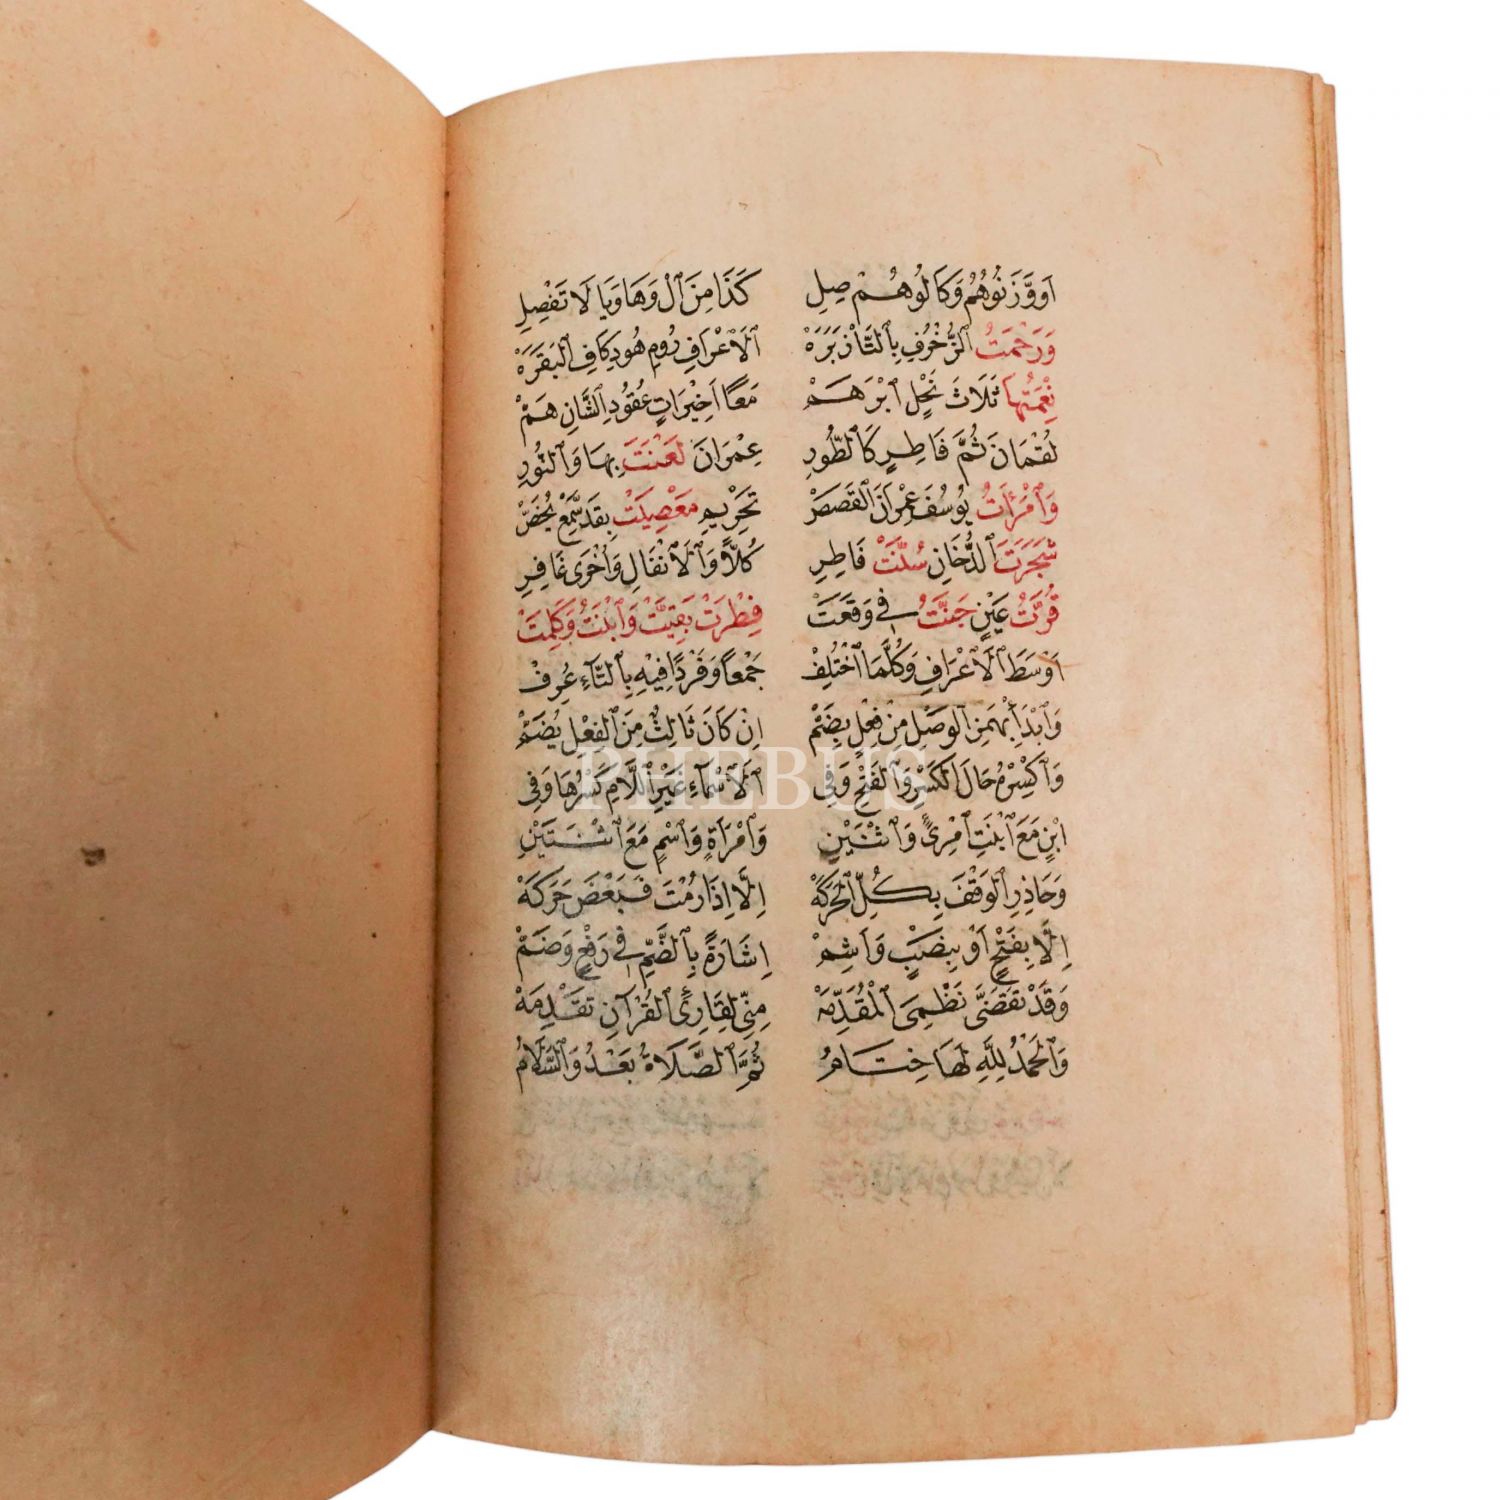 اَوْ وَّزَنُوْهُمْ وَكَالُوْهُمْ صِلِ كَذَا مِنَ ٱلْ وَهَا وَيَا لَا تَفْصِلِ
وَرَحْمَتُ ٱلزُّخْرُفِ بِٱلتَّاْ زَبَرَهْ ٱلَاْعْرَافِ رُومِ هُودِ كَافِ ٱلْبَقَرَهْ
نِعْمَتُهَا ثَلَاثَ نَحْلٍ ٱبْرَهَمْ مَعًا اَخِيْرَاتٍ عُقُودِ ٱلثَّانِ هَمْ
لُقْمَانَ ثُمَّ فَاطِرٍ كَٱلطُّورِ عِمْرَانَ لَعْنَتَ بِهَا وَٱلنُّورِ
وَٱمْرَأَتُ يُوسُفَ عِمْرَانَ ٱلْقَصَصْ تَحْرِيمِ مَعْصِيَتْ بِقَدْ سَّمِعْ يُخَصّْ
شَجَرَتَ ٱلدُّخَانِ سُنَّتْ فَاطِرِ كُلّاً وَٱلَاْنْفَالِ وَاُخْرٰى غَافِرِ
قُرَّتُ عَيْنٍ جَنَّتُ فِي وَقَعَتْ فِطْرَتْ بَقِيَّتْ وَٱبْنَتُ وَكَلِمَتْ
اَوْسَطَ ٱلَاْعْرَافِ وَكُلَّمَا ٱخْتُلِفْ جَمْعاً وَفَرْدًا فِيْهِ بِٱلتَّآءِ عُرِفْ
وَٱبْدَأْ بِهَمْزِ ٱلْوَصْلِ مِنْ فِعْلٍ بِضَمّْ اِنْ كَانَ ثَالِثٌ مِنَ ٱلْفِعْلِ يُضَمّْ
وَٱكْسِرْهُ حَالَ ٱلْكَسْرِ وَٱلْفَتْحِ وَفِي ٱلَاْسْمَآءِ غَيْرِ ٱللَّامِ كَسْرُهَا وَفِي
ٱبْنٍ مَعَ ٱبْنَتِ ٱمْرِئٍ وَٱثْنَيْنِ وَٱمْرَأَةٍ وَٱسْمٍ مَعَ ٱثْنَتَيْنِ
وَحَاذِرِ ٱلْوَقْفَ بِكُلِّ ٱلْحَرَكَهْ اِلَّا اِذَا رُمْتَ فَبَعْضَ حَرَكَهْ
اِلَّا بِفَتْحٍ اَوْ بِنَصْبٍ وَاَشِمْ اِشَارَةً بِٱلضَّمِّ فِي رَفْعٍ وَضَمّْ
وَقَدْ تَقَضَّى نَظْمِيَ ٱلْمُقَدِّمَهْ مِنِّي لِقَارِئِ ٱلْقُرْآنِ تَقْدِمَهْ
وَٱلْحَمْدُ لِلّٰهِ لَهَا خِتَامُ ثُمَّ ٱلصَّلَاةُ بَعْدُ وَٱلسَّلَامُ
PHEBUS